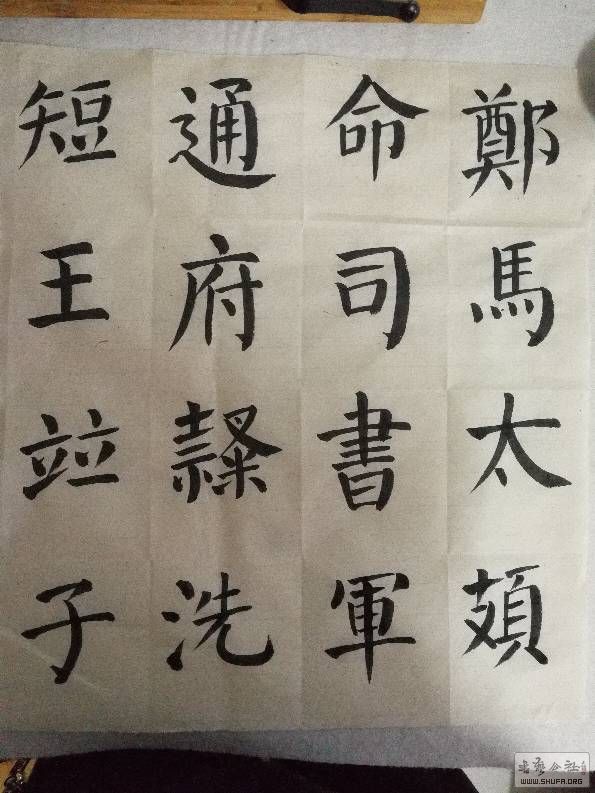 鄭馬太頍
命司書軍
通府隸洗
短王竝子
WWW.SHUFA.ORG